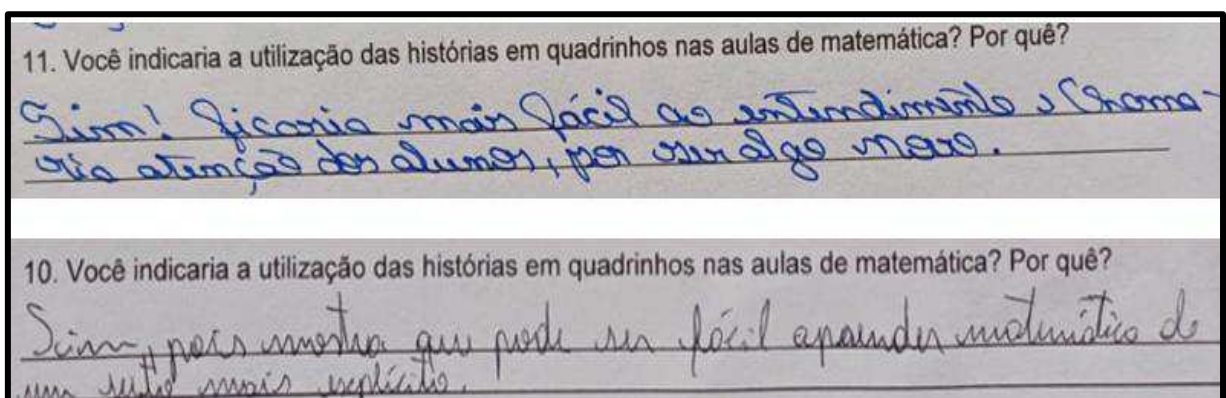 11. Você indicaria a utilização das histórias em quadrinhos nas aulas de matemática? Por quê?
Sim! ficaria mais fácil ao entendimento e chama-
ria atenção dos alunos, por ser algo novo.
10. Você indicaria a utilização das histórias em quadrinhos nas aulas de matemática? Por quê?
Sim, pois mostra que pode ser fácil aprender matemática de
um jeito mais explícito.